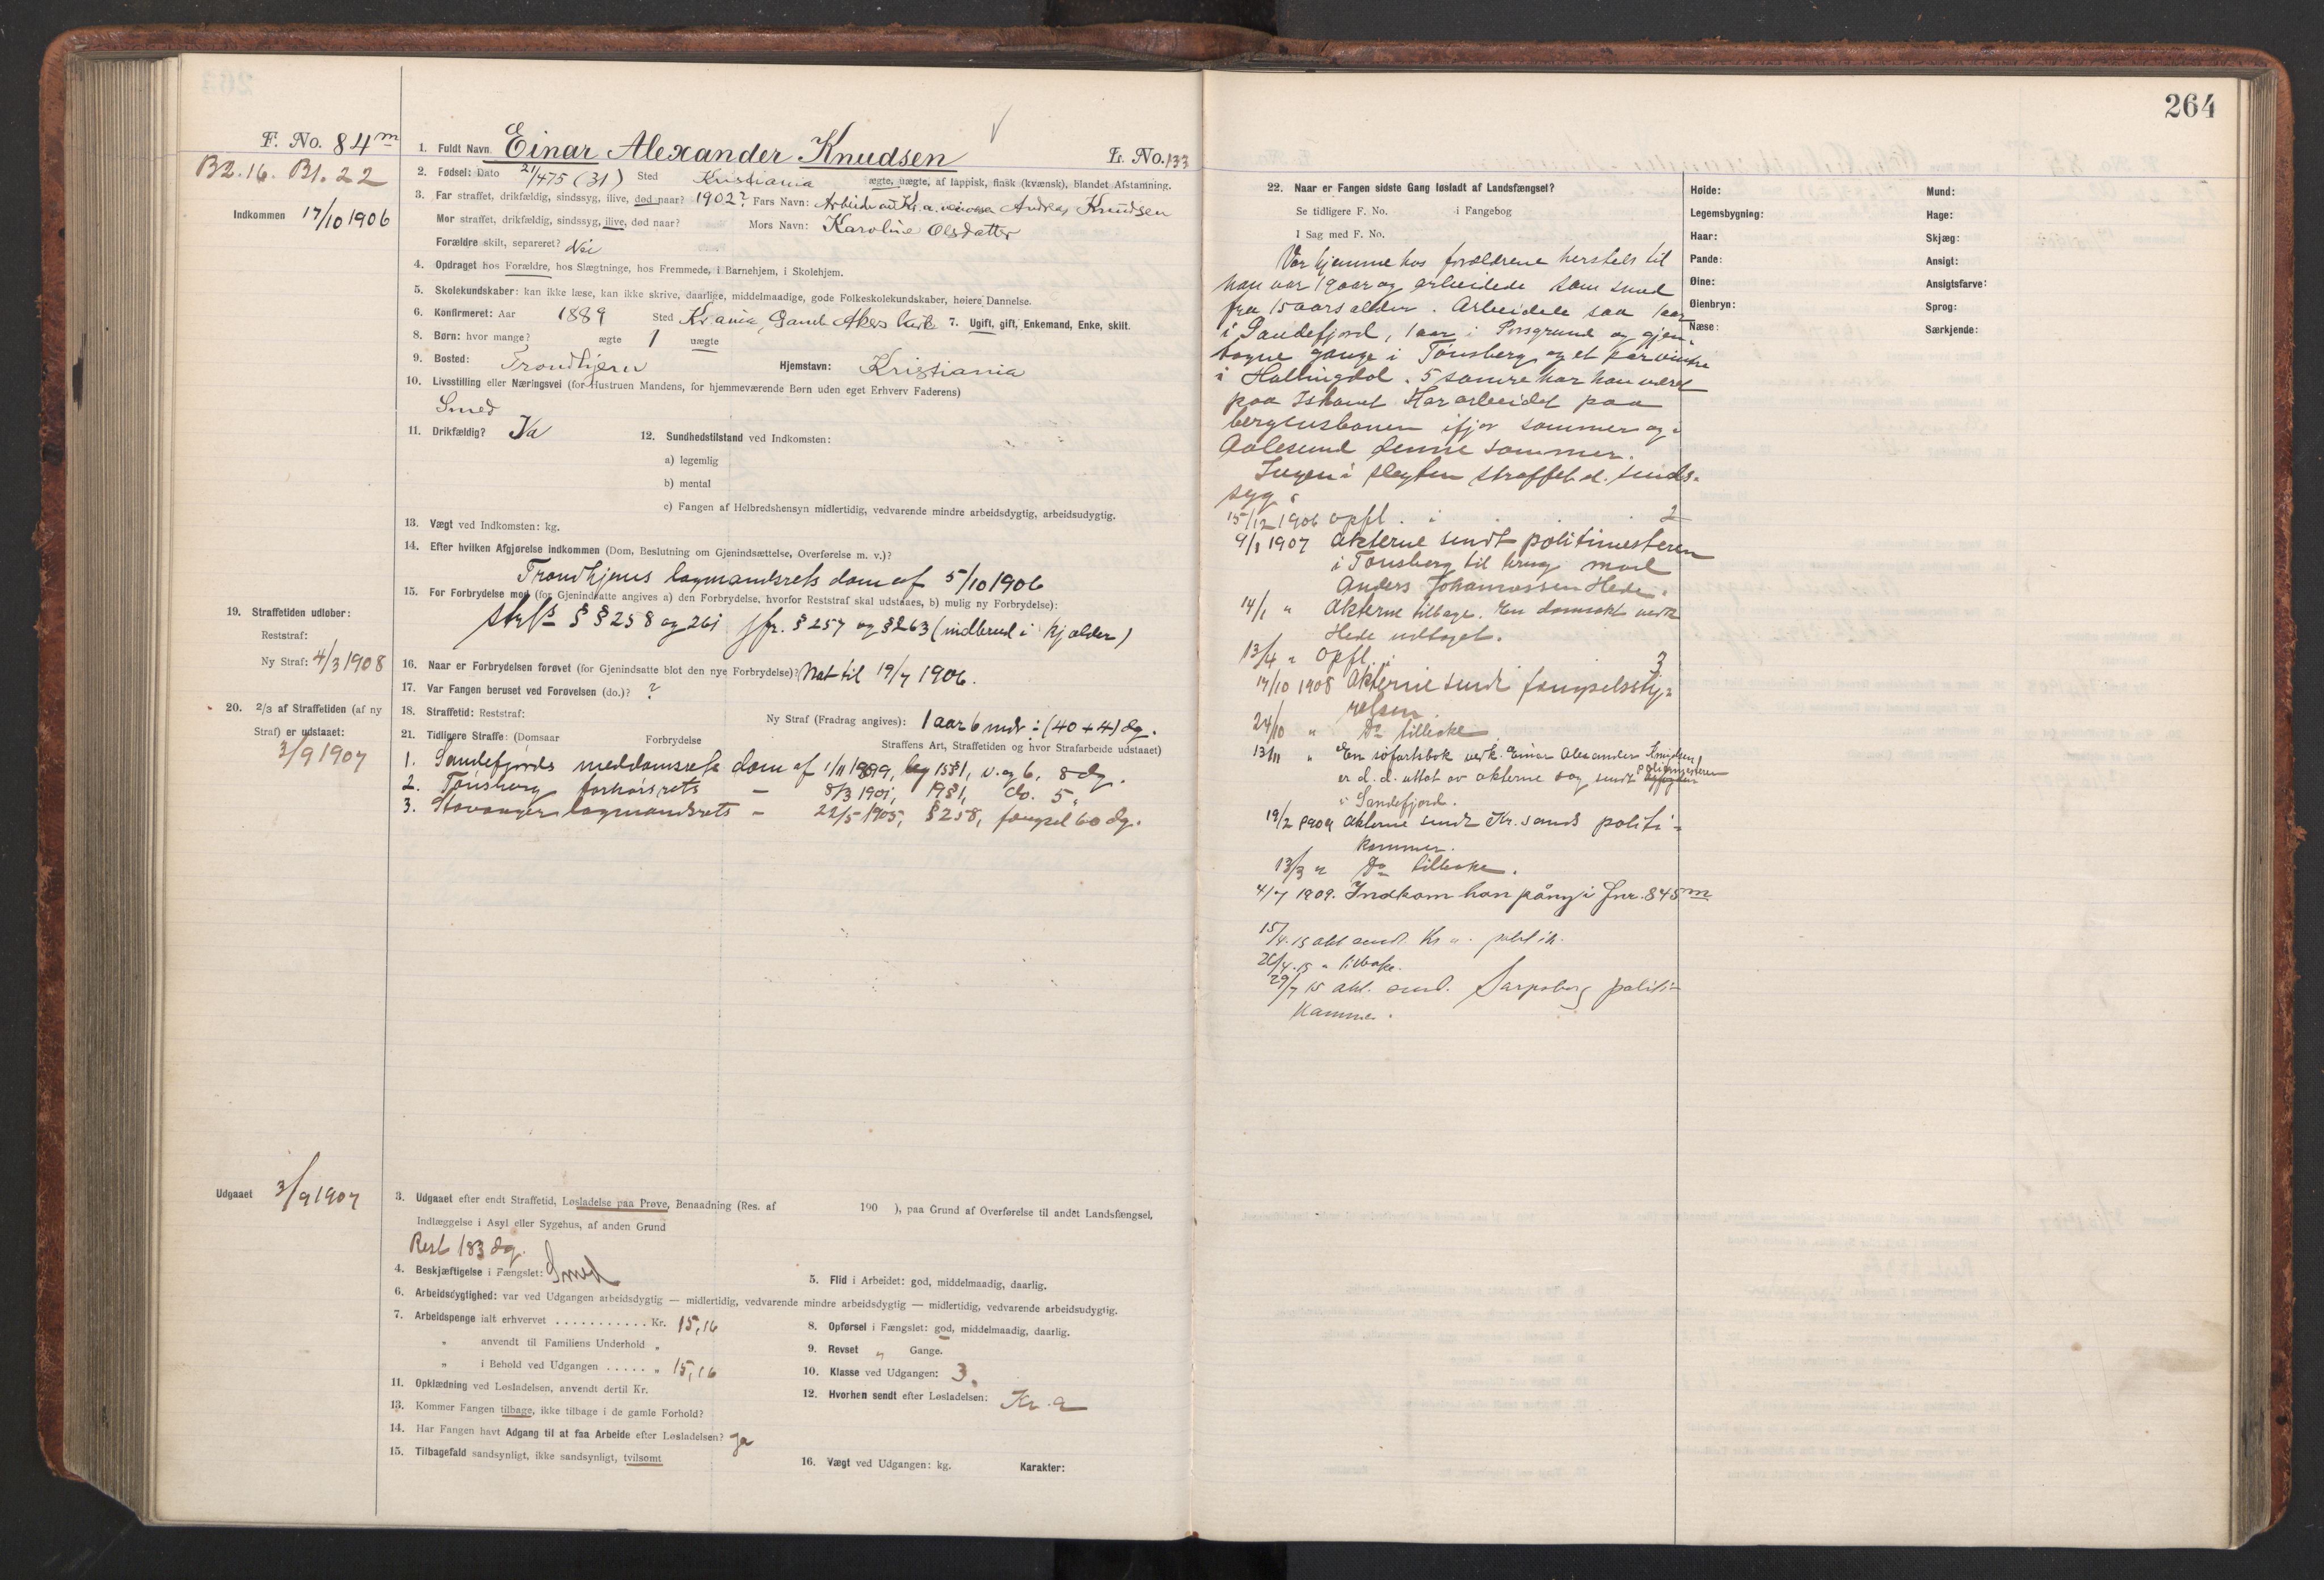 264
F. No. 84 m
B2. 16. Bl. 22
Indkommen 17/10 1906
1. Fuldt Navn Einar Alexander Knudsen L. No. 133
2. Fødsel: Dato 21/4 75 (31) Sted Kristiania ægte, uægte, af lappisk, finsk (kvænsk), blandet Afstamning.
3. Far straffet, drikfældig, sindssyg, ilive, død naar? 1902? Fars Navn: Andreas Knudsen
Mor straffet, drikfældig, sindssyg, ilive, død naar? Mors Navn: Karoline Olsdatter
Forældre skilt, separeret? Nei
4. Opdraget hos Forældre, hos Slægtninge, hos Fremmede, i Barnehjem, i Skolehjem.
5. Skolekundskaber: kan ikke læse, kan ikke skrive, daarlige, middelmaadige, gode Folkeskolekundskaber, høiere Dannelse.
6. Konfirmeret: Aar 1889 Sted Kr.ania, Gamle Akers kirke 7. Ugift, gift, Enkemand, Enke, skilt.
8. Børn: hvor mange? ægte 1 uægte
9. Bosted: Trondhjem Hjemstavn: Kristiania
10. Livsstilling eller Næringsvei (for Hustruen Mandens, for hjemmeværende Børn uden eget Erhverv Faderens)
Smed
11. Drikfældig? Ja 12. Sundhedstilstand ved Indkomsten:
a) legemlig
b) mental
c) Fangen af Helbredshensyn midlertidig, vedvarende mindre arbeidsdygtig, arbeidsudygtig.
13. Vægt ved Indkomsten: kg.
14. Efter hvilken Afgjørelse indkommen (Dom, Beslutning om Gjenindsættelse, Overførelse m. v.)?
Trondhjems lagmandsrets dom af 5/10 1906
15. For Forbrydelse mod (for Gjenindsatte angives a) den Forbrydelse, hvorfor Reststraf skal udstaaes, b) mulig ny Forbrydelse):
§ § 258 og 261 jfr. § 257 og § 263 (indbrud i kjælder)
19. Straffetiden udløber:
Reststraf:
Ny Straf: 4/3 1908
16. Naar er Forbrydelsen forøvet (for Gjenindsatte blot den nye Forbrydelse)? Nat til 19/7 1906.
17. Var Fangen beruset ved Forøvelsen (do.)? ?
18. Straffetid: Reststraf: Ny Straf (Fradrag angives): 1 aar 6 mdr ÷ (40 + 4) dg.
20. 2/3 af Straffetiden (af ny
Straf) er udstaaet:
3/9 1907
21. Tidligere Straffe: (Domsaar Forbrydelse Straffens Art, Straffetiden og hvor Strafarbeide udstaaet)
1. Sandefjords meddomsrets dom af 1/11 1899, lag 15§1, v. og b. 8 dg.
2. Tønsberg forhørsrets — 8/3 1901, 19§1, do. 5 "
3. Stavanger lagmandsrets — 22/5 1905, § 258, fængsel 60 dg.
Udgaaet 3/9 1907
3. Udgaaet efter endt Straffetid, Løsladelse paa Prøve, Benaadning (Res. af 190 ), paa Grund af Overførelse til andet Landsfængsel,
Indlæggelse i Asyl eller Sygehus, af anden Grund
Rest 183 dg.
4. Beskjæftigelse i Fængslet: Smed
5. Flid i Arbeidet: god, middelmaadig, daarlig.
6. Arbeidsdygtighed: var ved Udgangen arbeidsdygtig — midlertidig, vedvarende mindre arbeidsdygtig — midlertidig, vedvarende arbeidsudygtig.
7. Arbeidspenge ialt erhvervet ........... Kr. 15,16
" anvendt til Familiens Underhold "
" i Behold ved Udgangen ..... " 15,16
8. Opførsel i Fængslet: god, middelmaadig, daarlig.
9. Revset " Gange.
10. Klasse ved Udgangen: 3.
11. Opklædning ved Løsladelsen, anvendt dertil Kr.
12. Hvorhen sendt efter Løsladelsen: Kr.a
13. Kommer Fangen tilbage, ikke tilbage i de gamle Forhold?
14. Har Fangen havt Adgang til at faa Arbeide efter Løsladelsen? Ja
15. Tilbagefald sandsynligt, ikke sandsynligt, tvilsomt
16. Vægt ved Udgangen: kg. Karakter:
22. Naar er Fangen sidste Gang løsladt af Landsfængsel?
Se tidligere F. No. i Fangebog
I Sag med F. No.
Var hjemme hos forældrene hersteds til
han var 19 aar og arbeidede som smed
fra 15 aars alder. Arbeidede saa 1 aar
i Sandefjord, 1 aar i Porsgrund og gjen-
tagne gange i Tønsberg og et par vintre
i Hallingdal. 5 somre har han været
paa Island. Har arbeidet paa
bergensbanen ifjor sommer og i
Aalesund denne sommer.
Ingen i slegten straffet el. sinds-
syg.
15/12 1906 opfl. i 2
9/1 1907 Akterne sendt politimesteren
i Tønsberg til brug mod
Anders Johannessen Hede.
14/1 " Akterne tilbage. En domsakt vedk
Hede udtaget.
13/4 " Opfl. i 3
17/10 1908 Akterne sendt fængselssty-
relsen
24/10 " Do tilbake
13/11 " En søfartsbok vedk. Einar Alexander Knudsen
er d. d. uttat av akterne og sendt politimesteren
i Sandefjord.
19/2 1909 Akterne sendt Kr.sands politi-
kammer.
13/3 " Do tilbake.
4/7 1909. Indkom han påny i Fnr. 845 m
15/4.15 akt sendt Kr a. politik.
26/4.15 " tilbake.
29/7 15 akt. send. Sarpsborg politi-
kammer.
Høide:
Legemsbygning:
Haar:
Pande:
Øine:
Øienbryn:
Næse:
Mund:
Hage:
Skjæg:
Ansigt:
Ansigtsfarve:
Sprog:
Særkjende: